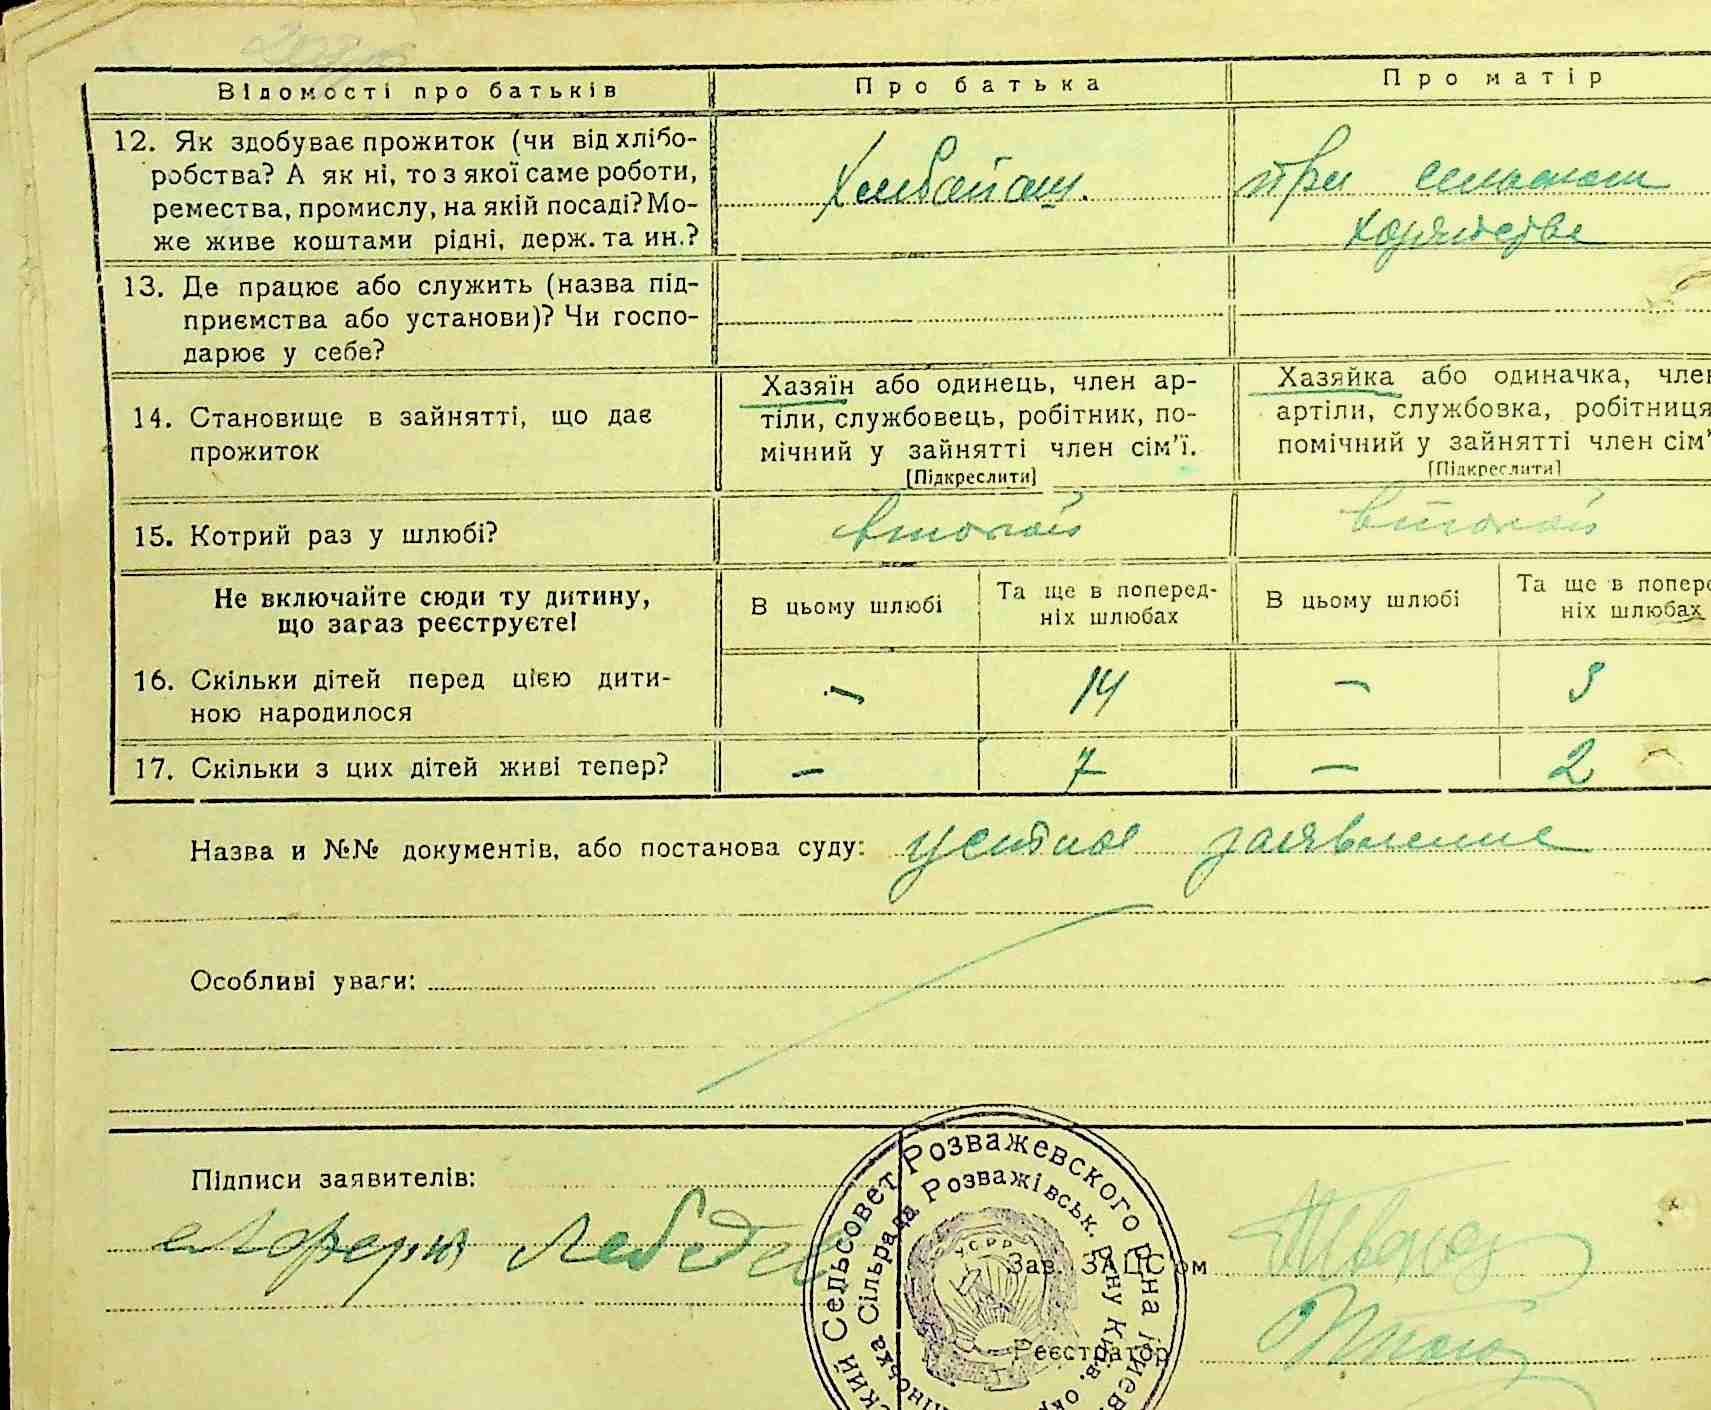 Відомості про батьків
Про батька
Про матір
12. Як здобуває прожиток (чи від хлібо-
робства? А як ні, то з якої саме роботи,
ремества, промислу, на якій посаді? Мо-
же живе коштами рідні, держ. та ин.?
при сельском
хозяйстве
13. Де працює або служить (назва під-
приємства або установи)? Чи госпо-
дарює у себе?
14. Становище в зайнятті, що дає
прожиток
Хазяїн або одинець, член ар-
тіли, службовець, робітник, по-
мічний у зайнятті член сім'ї.
[Підкреслити]
Хазяйка або одиначка, член
артіли, службовка, робітниця
помічний у зайнятті член сім'
[Підкреслити]
15. Котрий раз у шлюбі?
второй
второй
Не включайте сюди ту дитину,
що зараз реєструєте!
В цьому шлюбі
Та ще в поперед-
ніх шлюбах
В цьому шлюбі
Та ще в попере
ніх шлюбах
16. Скільки дітей перед цією дити-
ною народилося
– 14 – 5
17. Скільки з цих дітей живі тепер?
– 7 – 2
Назва и №№ документів, або постанова суду: устное заявление
Особливі уваги:
Підписи заявителів:
Лебедь
Зав. ЗАЦС'ом
Реєстратор
ский Сельсовет Розважевского р-на Киев
інська Сільрада Розважівськ. р-ну Київ. окр
УСРР